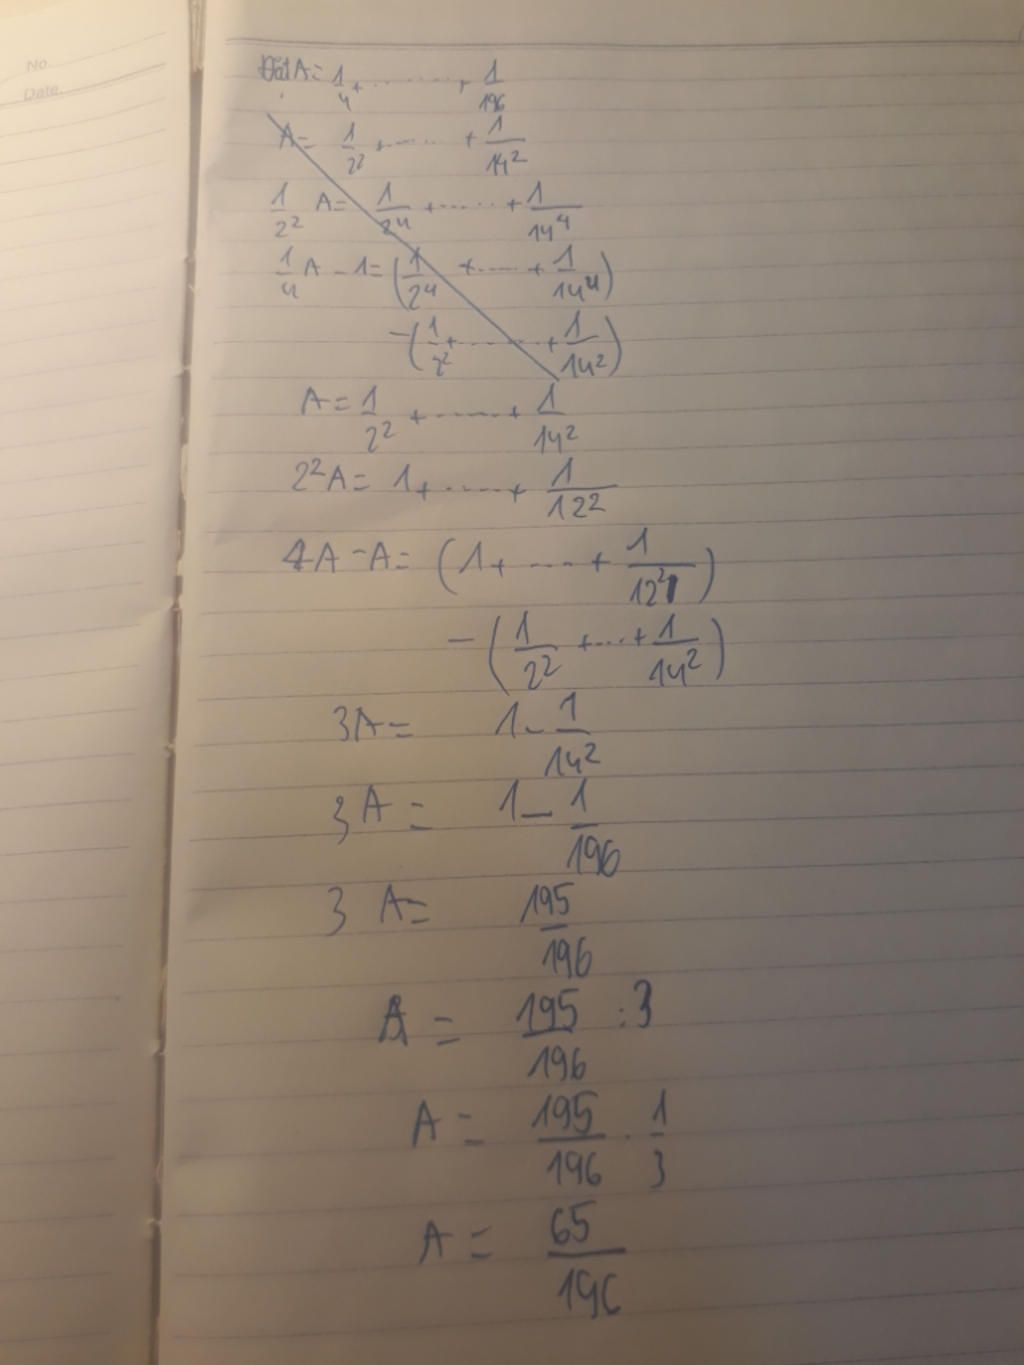 No.
Date.
Đặt A = 1/4 + ......... + 1/196
A = 1/2² + ....... + 1/14²
1/2² A = 1/2⁴ + ...... + 1/14⁴
1/4 A - 1 = (1/2⁴ + ..... + 1/14⁴)
- (1/2² + ........ + 1/14²)
A = 1/2² + ....... + 1/14²
2²A = 1 + ...... + 1/12²
4A - A = (1 + ..... + 1/12²)
- (1/2² + .... + 1/14²)
3A = 1 - 1/14²
3A = 1 - 1/196
3A = 195/196
A = 195/196 : 3
A = 195/196 . 1/3
A = 65/196